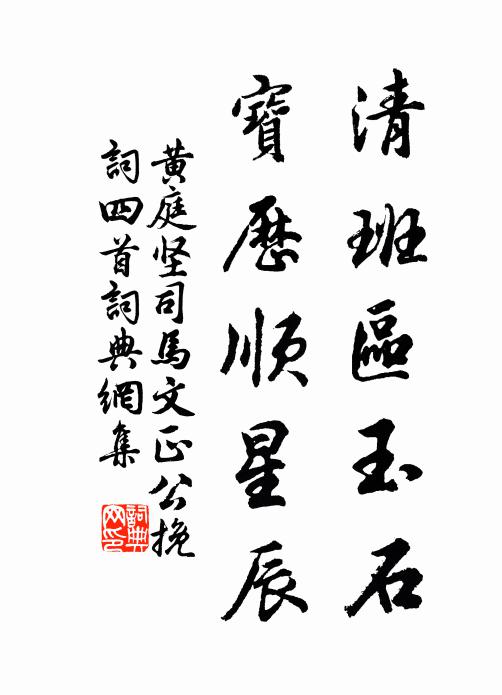 清班區玉石
寶歷順星辰
黃庭坚司馬文正公挽
詞四首詞典網集
詞典
网印